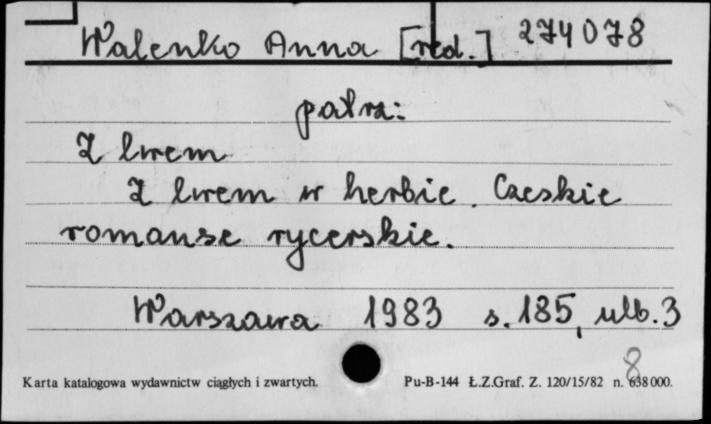 Walenko Anna [red.] 274078
patrz:
Z lwem
Z lwem w herbie. Czeskie
romanse rycerskie.
Warszawa 1983 s. 185, ulb. 3
8
Karta katalogowa wydawnictw ciągłych i zwartych. Pu-B-144 Ł.Z.Graf. Z. 120/15/82 n. 638 000.